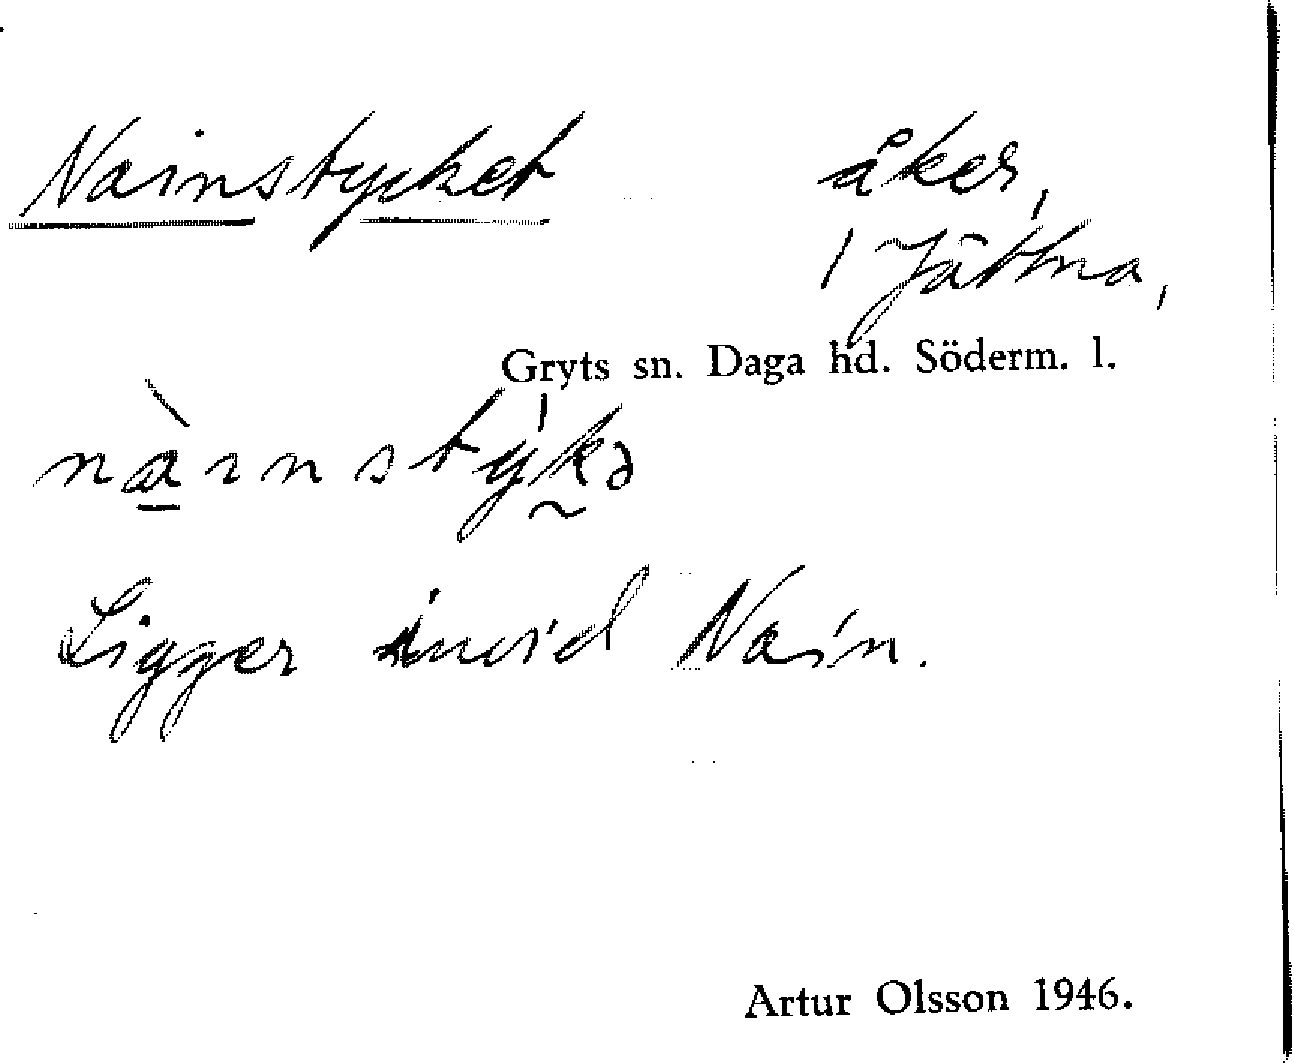 Nainstycket åker,
1 Jättna,
Gryts sn. Daga hd. Söderm. l.
nàınstýkə
Ligger invid Nain.
Artur Olsson 1946.